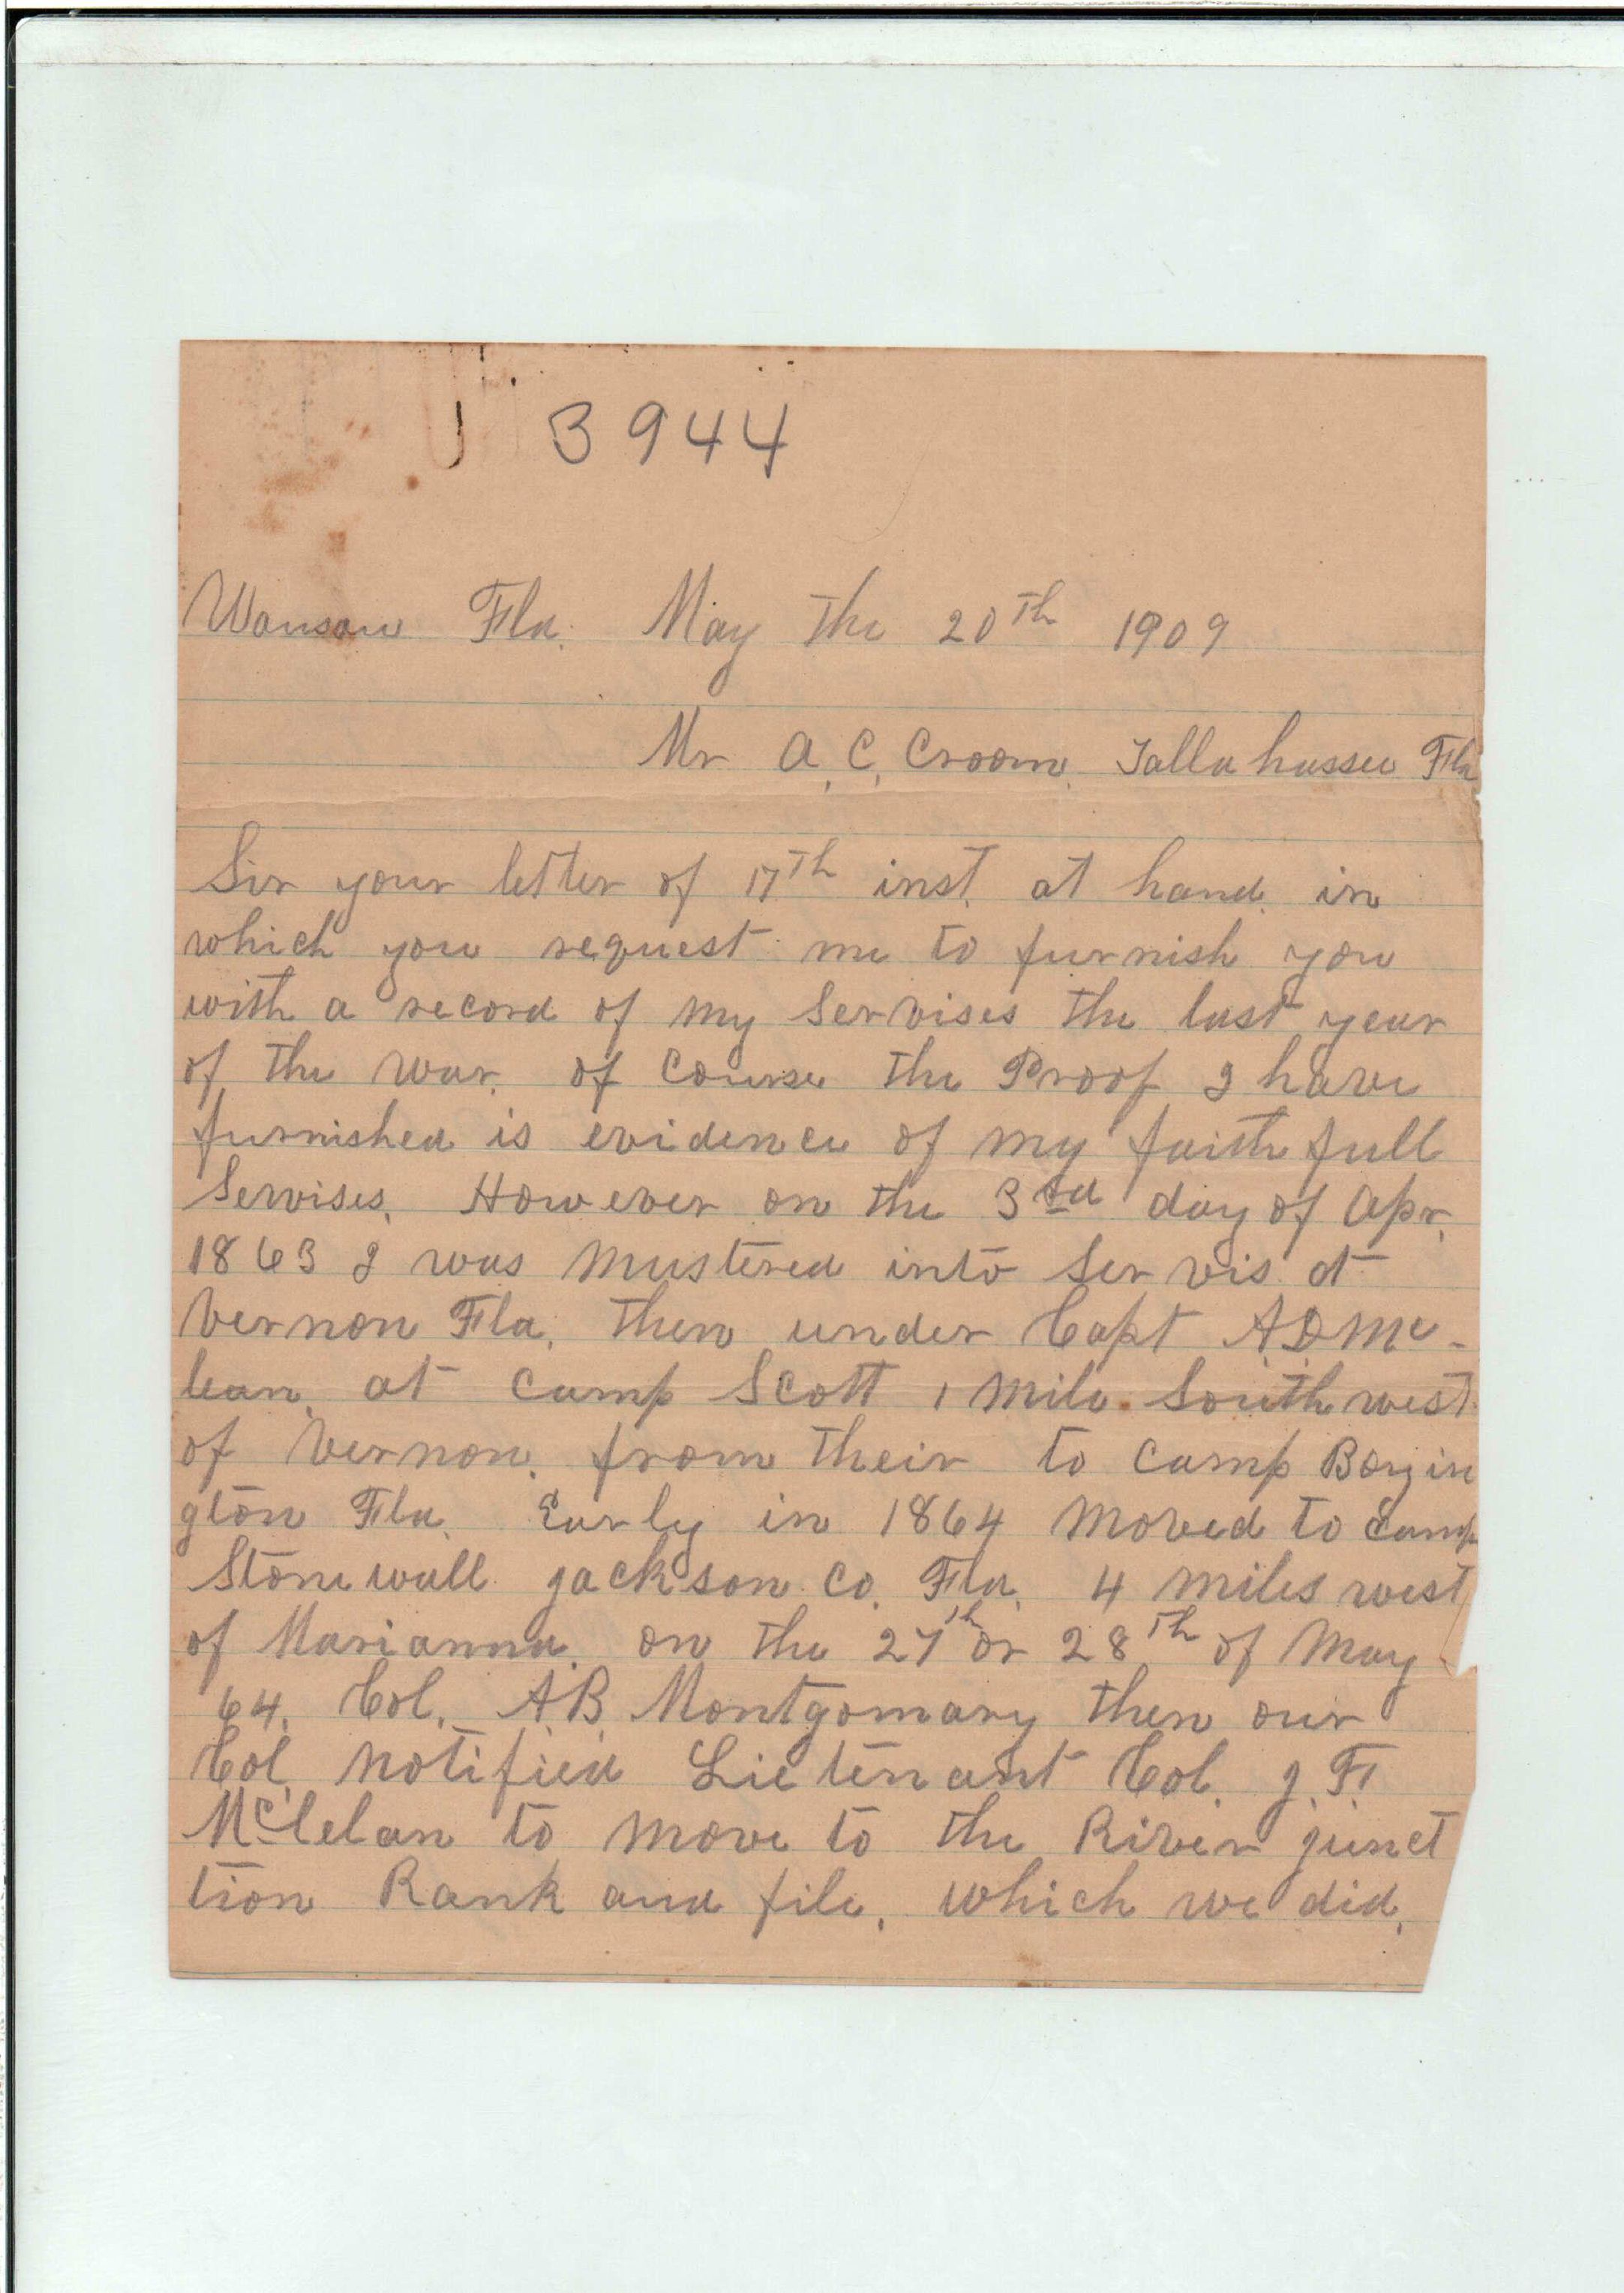 3944
Wausau Fla. May the 20th 1909
Mr A. C. Croom. Tallahassee Fla
Sir your letter of 17th inst. at hand. in
which you request me to furnish you
with a record of my Servises the last year
of the war. of Course the Proof I have
furnished is evidence of my faithfull
Servises. However on the 3rd day of Apr.
1863 I was mustered into Servis at
Vernon Fla. then under Capt A.D. Mc-
lean. at Camp Scott 1 mile South west
of Vernon. from their to Camp
gton Fla. Early in 1864 moved to Camp
Stonewall Jackson Co. Fla. 4 miles west
of Marianna. on the 27th or 28th of May
64. Col. A.B. Montgomary then our
Col. notified Lietenant Col. J. F.
McClelan to move to the River junct
tion Rank and file. which we did.